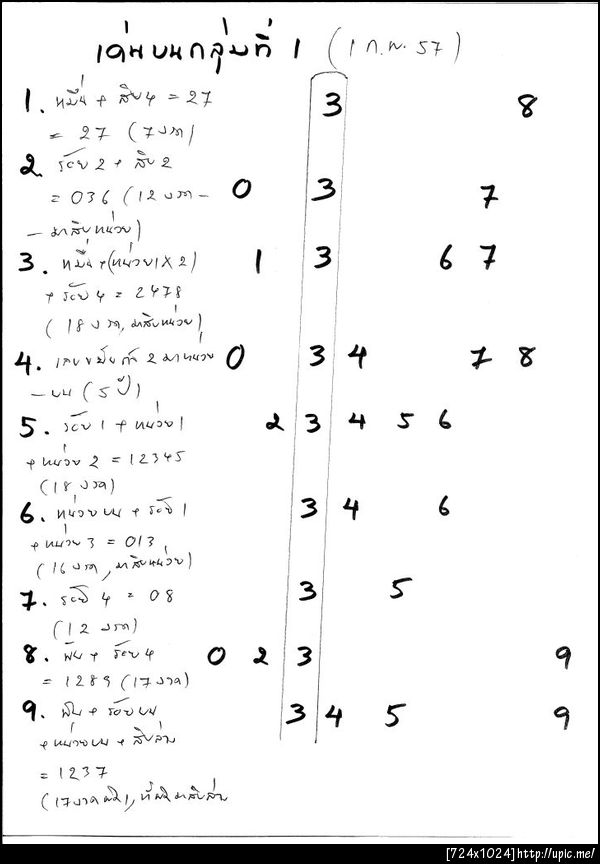 เด่นบนกลุ่มที่ 1 (1 ก.พ. 57)
1. หมื่น + สิบ 4 = 27 3 8
= 27 (7 งวด)
2. ร้อย 2 + สิบ 2
= 036 (12 งวด - 0 3 7
- มาสิบหน่วย)
3. หมื่น + (หน่วย 1 X 2) 1 3 6 7
+ ร้อย 4 = 2478
(18 งวด, มาสิบหน่วย)
4. 2 มาหน่วย 0 3 4 7 8
- บน (5 ปี)
5. ร้อย 1 + หน่วย 1 2 3 4 5 6
+ หน่วย 2 = 12345
(18 งวด)
6. หน่วยบน + ร้อย 1 3 4 6
+ หน่วย 3 = 013
(16 งวด, มาสิบหน่วย)
7. ร้อย 4 = 08 3 5
(12 งวด)
8. พัน + ร้อย 4 0 2 3 9
= 1289 (17 งวด)
9. พัน + ร้อยบน 3 4 5 9
+ หน่วยบน + สิบล่าง
= 1237
(17 งวด
[724x1024]http://upic.me/